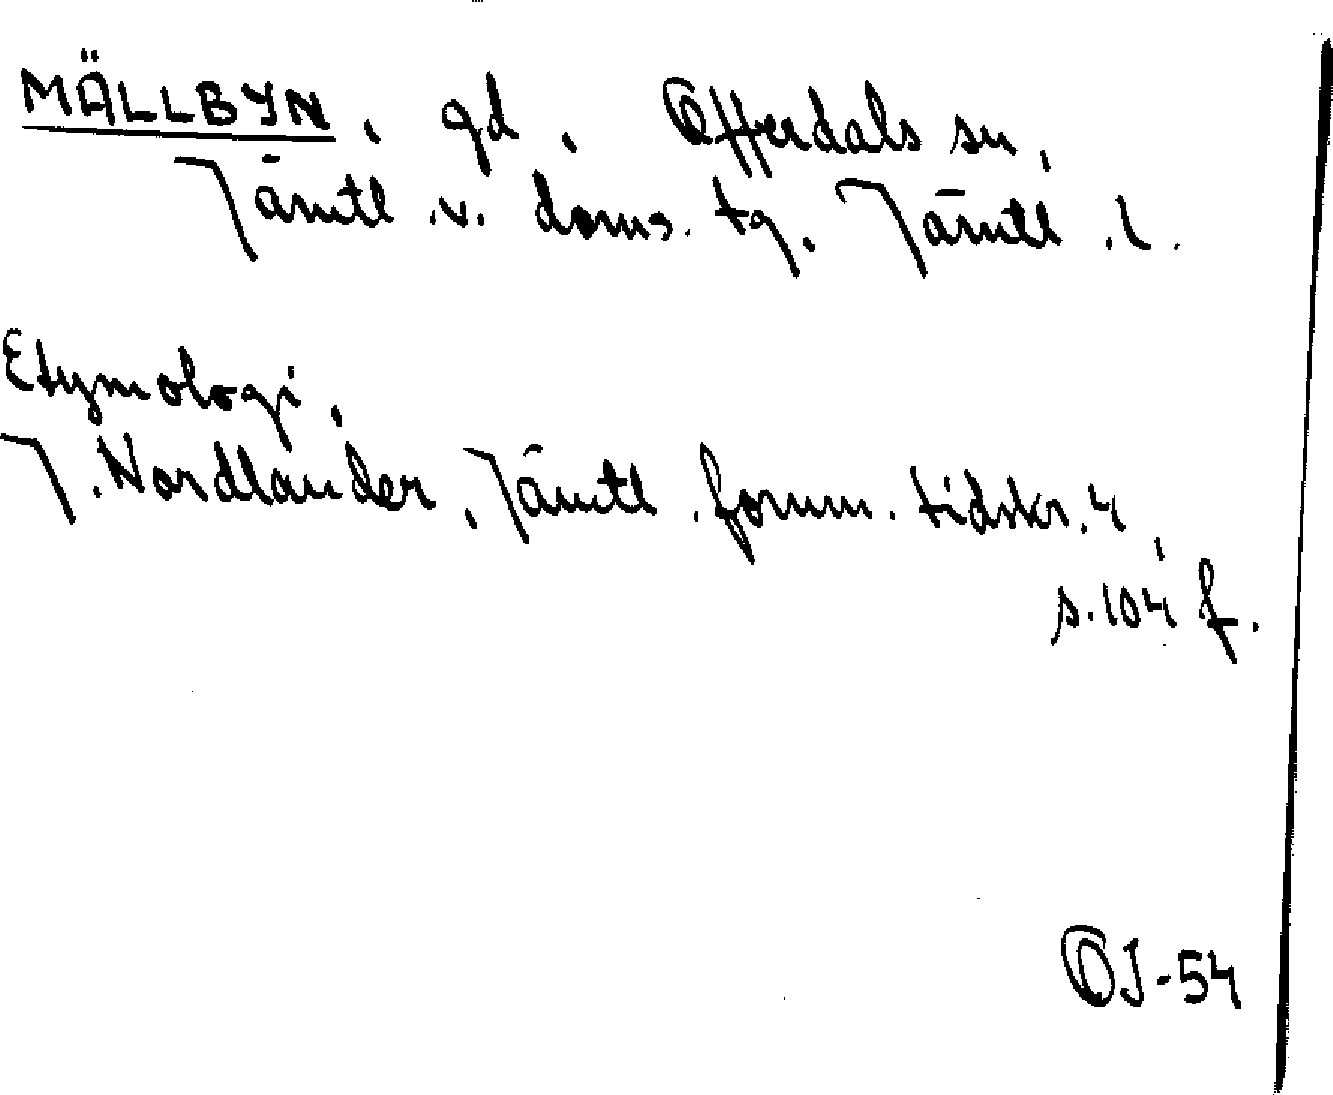 MÄLLBYN, gd, Offerdals sn,
Jämtl.v. doms. tg. Jämtl.l.
Etymologi,
J. Nordlander, Jämtl. fornm. tidskr. 4,
s. 104 f.
OJ-54